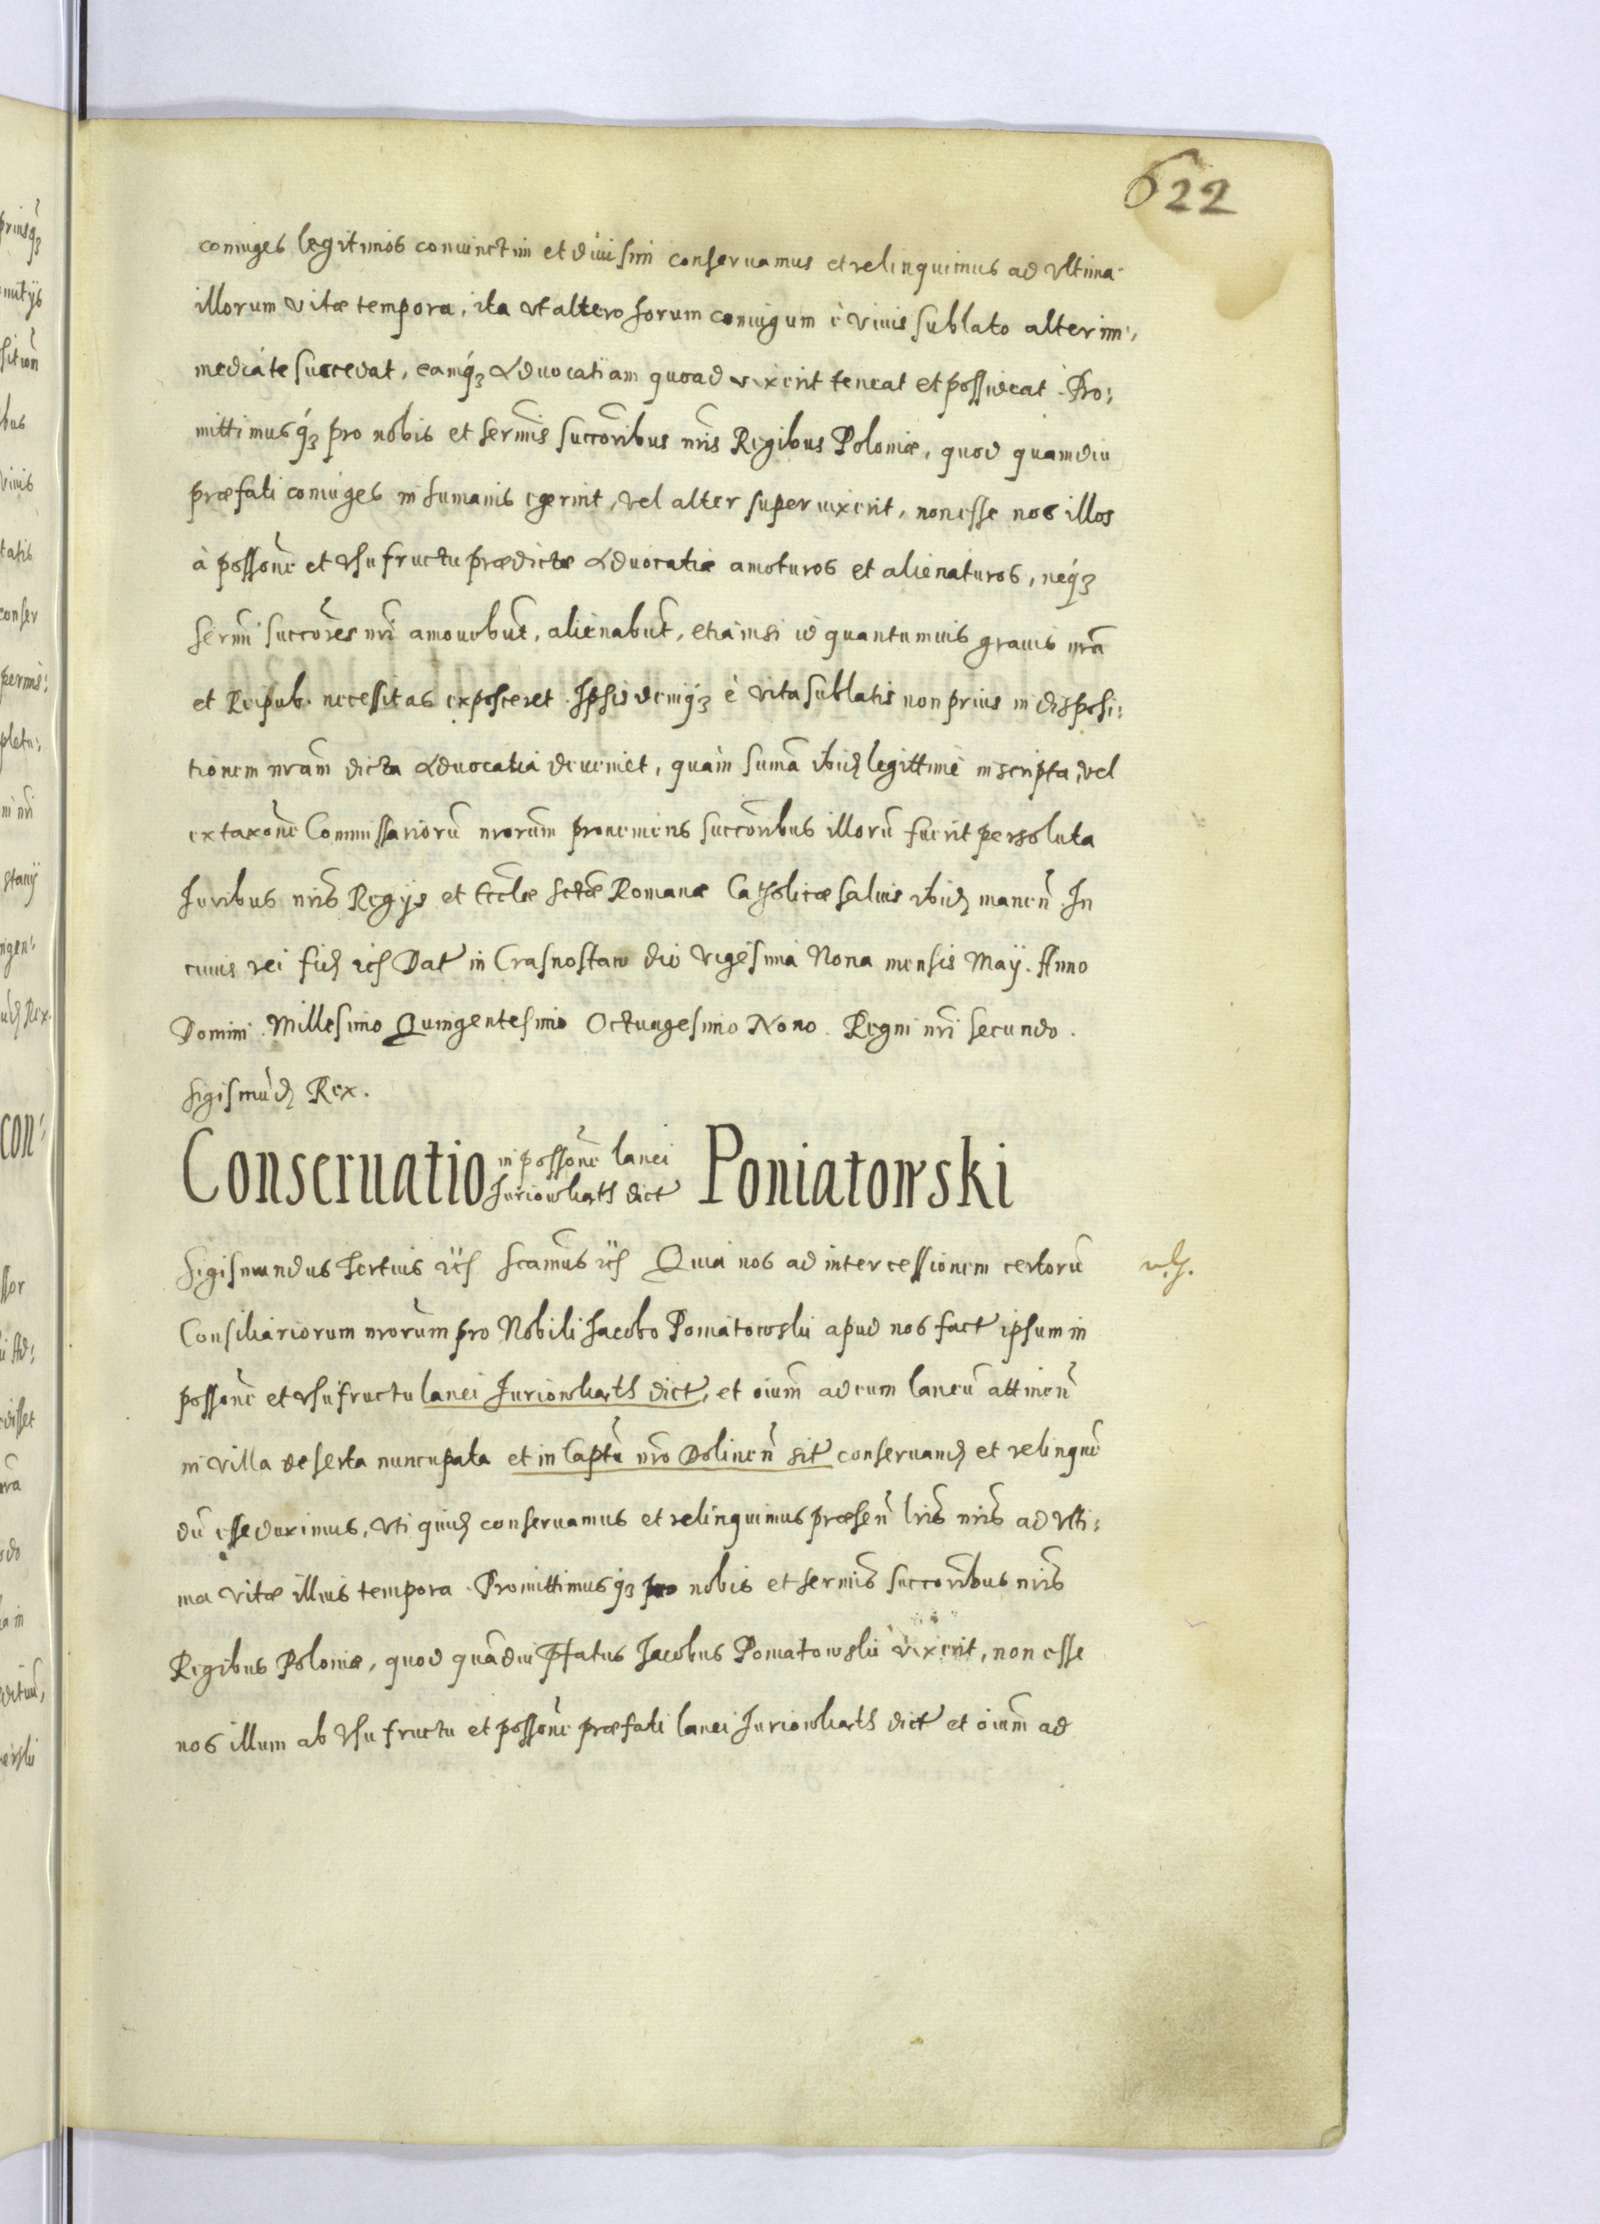 622
coniuges legitimos coniunctim et diuisim conseruamus et relinquimus ad vltima
illorum vitæ tempora, ita vt altero horum coniugum è viuis sublato alter im:
mediate succedat, eamq́ʒ Aduocatiam quoad vixerit teneat et possideat. Pro:
mittimusq́ʒ pro nobis et sermis succoribus nris Regibus Poloniæ, quod quamdiu
præfati coniuges in humanis egerint, vel alter superuixerit, non esse nos illos
à possone et vsufructu prædictæ Aduocatiæ amoturos et alienaturos, neq́ʒ
sermi succores nri amouebut, alienabut, etiamsi id quantumuis grauis nra
et Reipub. necessitas exposceret. Ipsis deniq́ʒ è vita sublatis non prius in disposi:
tionem nram dicta Aduocatia deueniet, quàm suma ibid legittimè inscripta, vel
ex taxone Commissarioru nrorum proueniens succoribus illoru fuerit persoluta
Iuribus nris Regijs et Eccliæ Sctæ Romanæ Catholicæ saluis ibid manen. In
cuius rei fid etc Dat in Crasnostaw die vigesima Nona mensis Maij. Anno
Domini. Millesimo Quingentesimo Octuagesimo Nono. Regni nri secundo.
Sigismud Rex.
Conseruatio in possone lanei Iuriowkath dict Poniatowski
Sigismundus tertius etc Scamus etc Quia nos ad intercessionem certoru
Consiliariorum nrorum pro Nobili Jacobo Poniatowski apud nos fact ipsum in
possone et vsufructu lanei Iuriowkath dict, et oium ad eum laneu attinen
in villa deserta nuncupata et in Captu nro Dolinen sit conseruand et relinque
du esse duximus, vti quid conseruamus et relinquimus præsen lris nris ad vlti:
ma vitæ illius tempora. Promittimusq́ʒ pro nobis et sermis succoribus nris
Regibus Poloniæ, quod quadiu pfatus Jacobus Poniatowski vixerit, non esse
nos illum ab vsufructu et possone præfati lanei Iuriowkath dict et oium ad